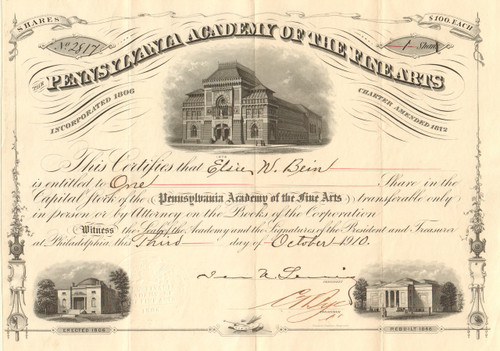 SHARES
$100. EACH
No 2817
1 Share
THE PENNSYLVANIA ACADEMY OF THE FINE ARTS
INCORPORATED 1806
CHARTER AMENDED 1872
This Certifies that Elsie W. Bein
is entitled to One Share in the
Capital stock of the Pennsylvania Academy of the Fine Arts transferable only
in person or by Attorney on the Books of the Corporation
Witness the Seal of the Academy and the Signatures of the President and Treasurer
at Philadelphia, this Third day of October 1910.
ERECTED 1806
REBUILT 1846